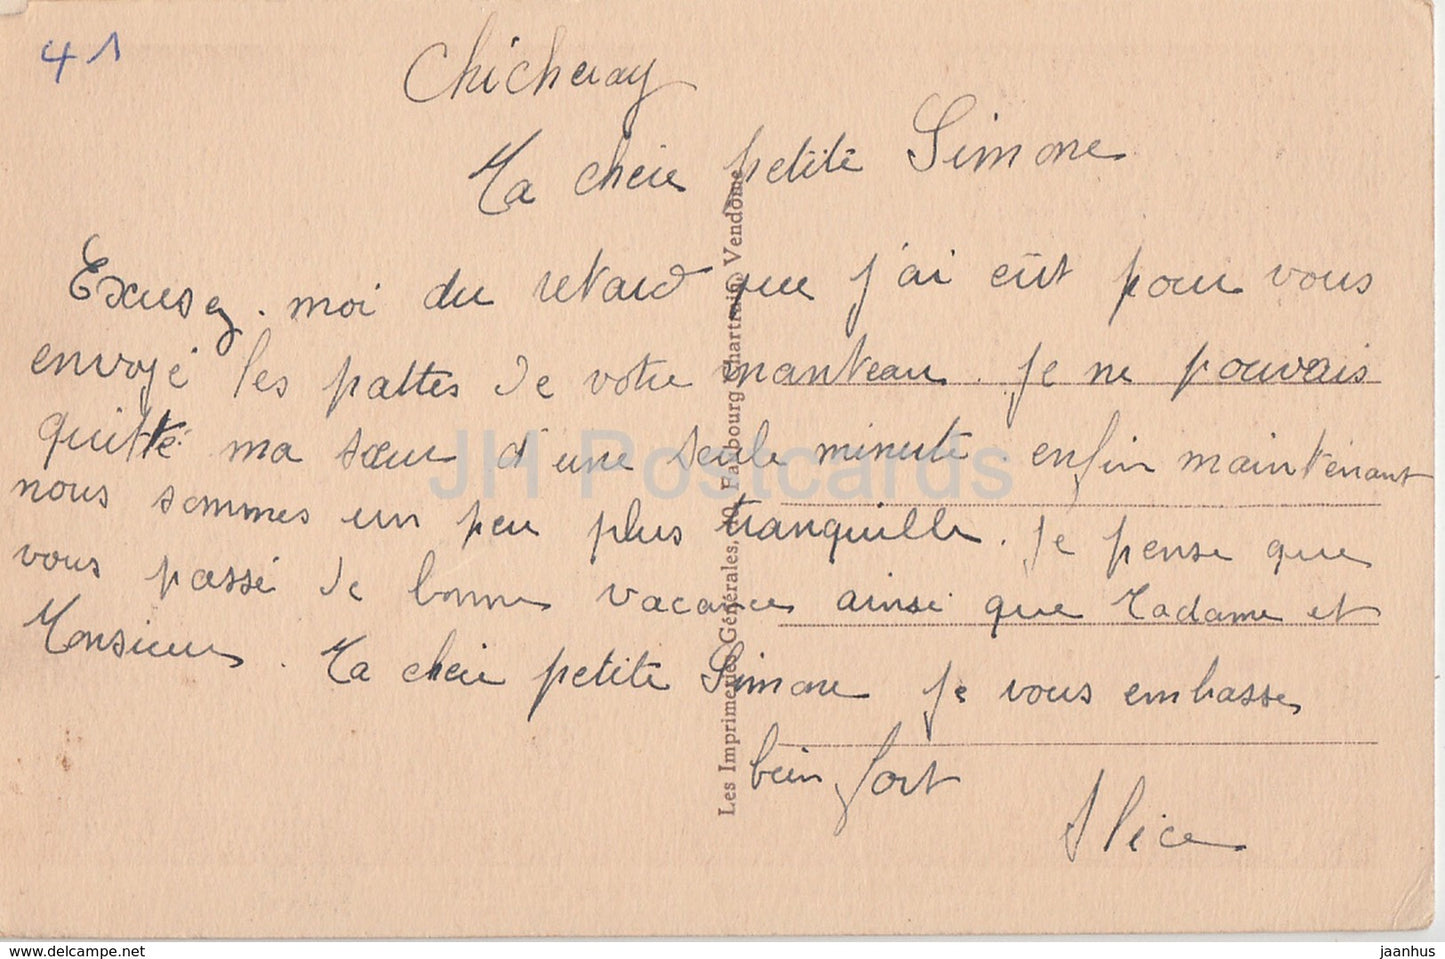 41
Chicheray
Ma cheie petite Simone
Excusez-moi du retard que j'ai eût pour vous
envoyé les pattes de votre manteau. Je ne pouvais
quitté ma sœur d'une seule minute. enfin maintenant
nous sommes un peu plus tranquille. Je pense que
vous passé de bonne vacance ainsi que Madame et
Monsieur. Ma cheie petite Simone je vous embasse
bien fort
Alice
Les Imprimeries Générales, 40, Faubourg Chartrain, Vendôme
JH Postcards
www.delcampe.net
jaanhus